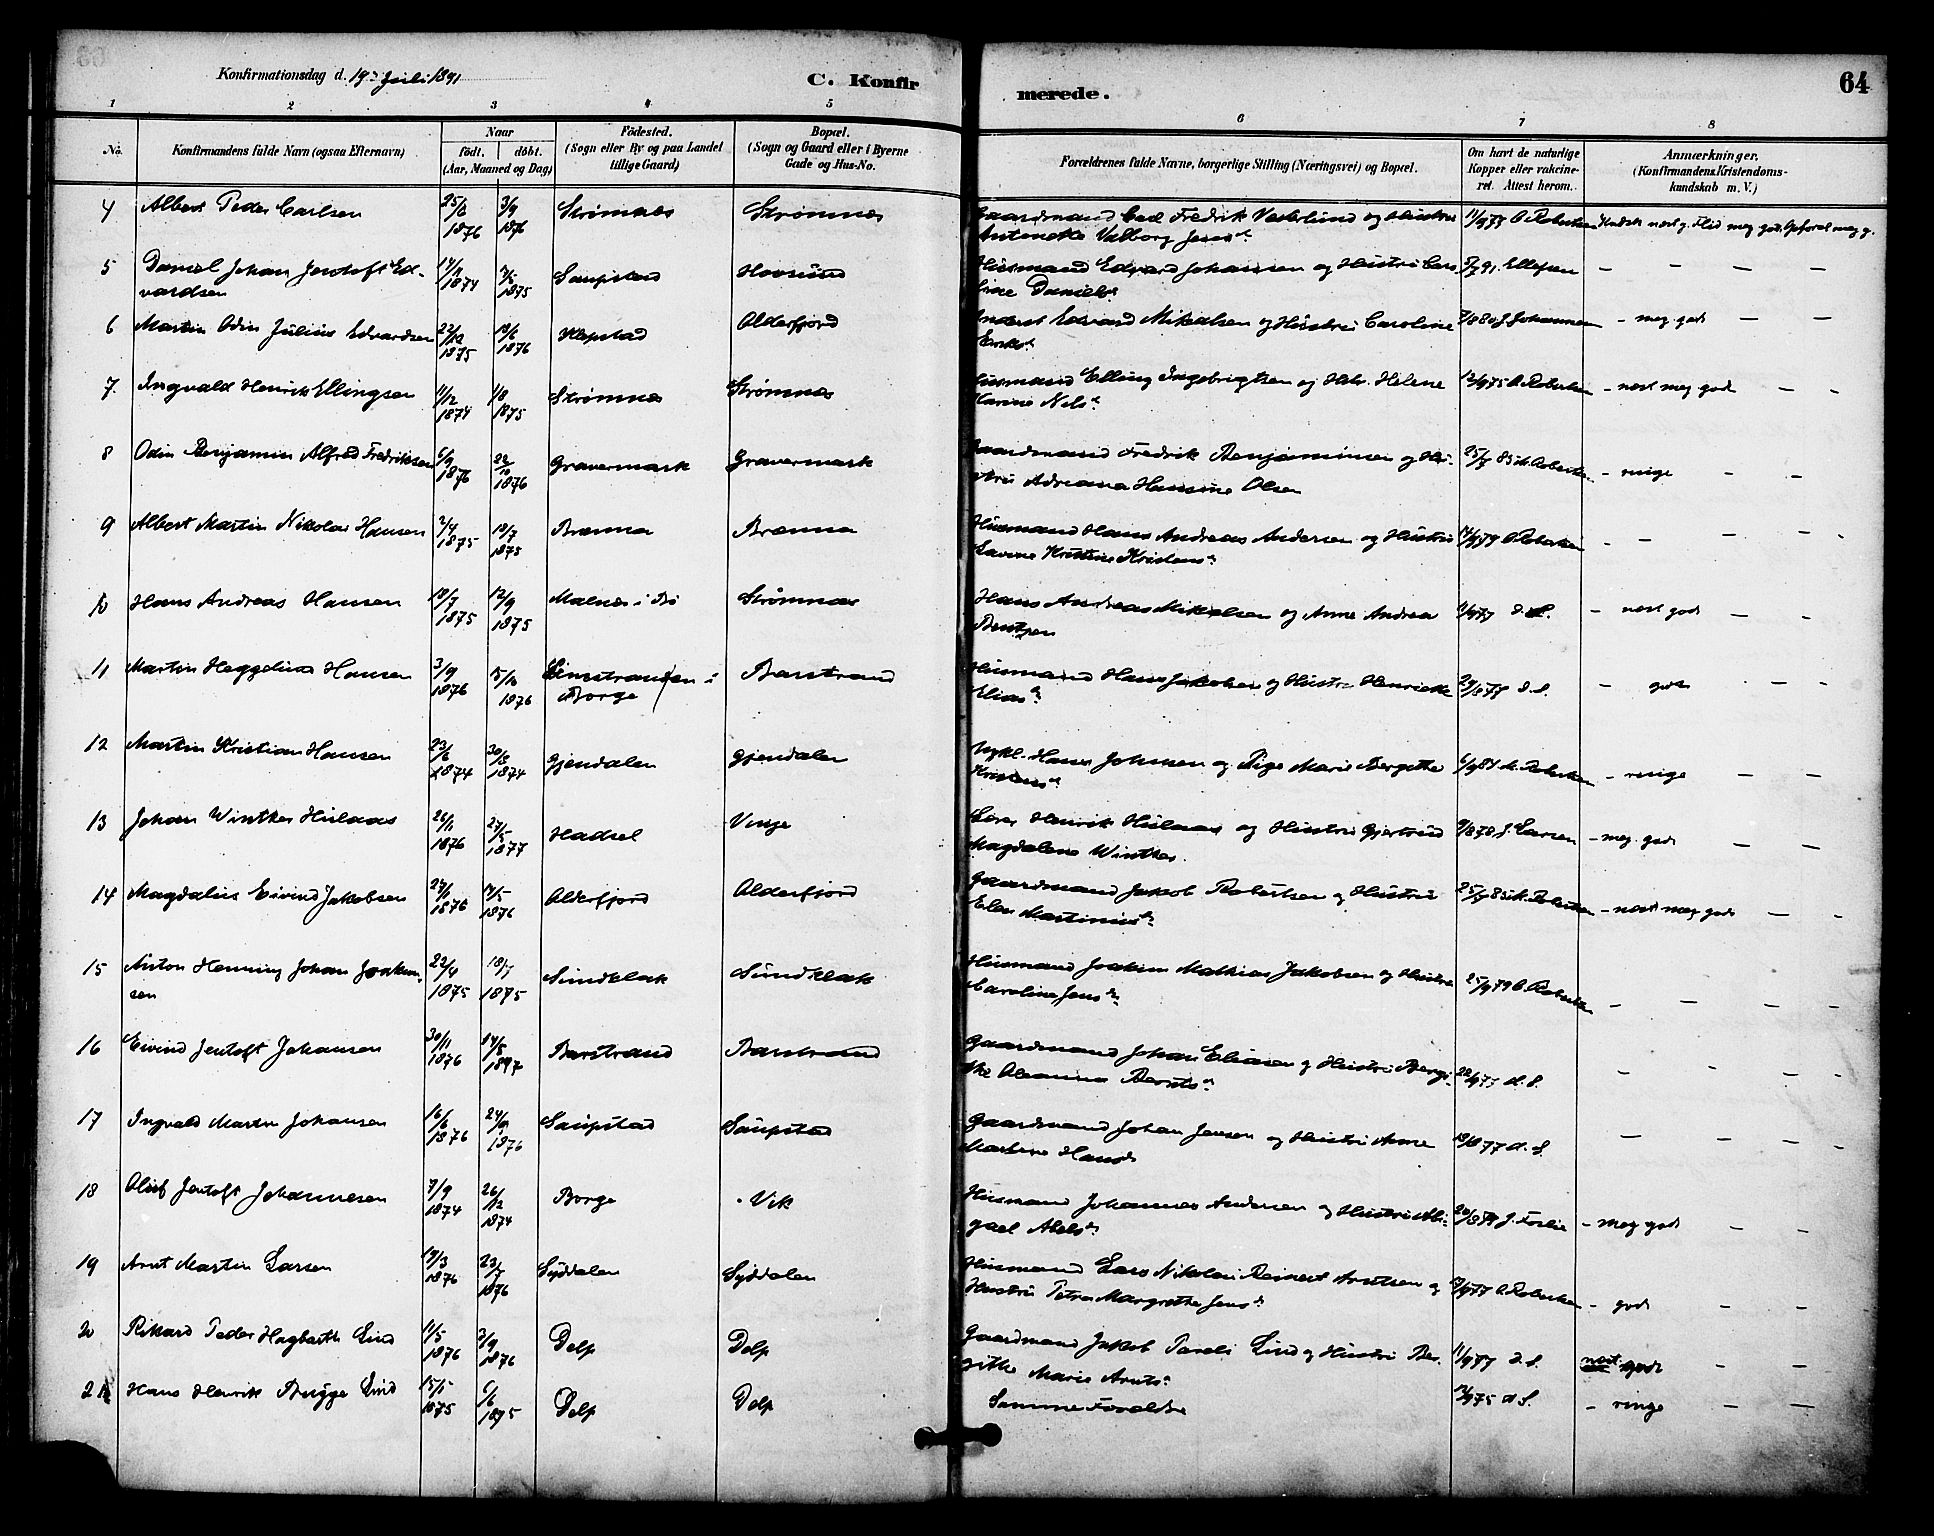 Konfirmationsdag d. 19de Juli 1891
C. Konfirmerede.
64
1 2 3 4 5 6 7 8
No.
Konfirmandens fulde Navn (ogsaa Efternavn)
Naar
födt. döbt.
(Aar, Maaned og Dag)
Födested.
(Sogn eller By og paa Landet
tillige Gaard)
Bopæl.
(Sogn og Gaard eller i Byerne
Gade og Hus-No.
Forældrenes fulde Navne, borgerlige Stilling (Næringsvei) og Bopæl.
Om havt de naturlige
Kopper eller vakcine-
ret. Attest herom.
Anmærkninger.
(Konfirmandens Kristendoms-
kundskab m. V.)
4 Albert Peder Carlsen 25/6 1876 3/9 1876 Strømnæs Strømnæs Gaardmand Carl Fredrik Vesterlund og Hustru
Antonette Valborg 11/9 77 O. Robertsen
5 Daniel Johan Jentoft Ed-
vardsen 1874 1875 Saupstad Hovsund Husmand Edvard Johansen og Hustru Caro
line Daniels d. Ellefsen — — — —
6 Martin Odin Julius Edvardsen 22/12 1875 18/6 1876 Klepstad Alderfjord Edvard Mikalsen og Hustru Caroline
J. Johannesen — meg godt — —
7. Ingvald Henrik Ellingsen 11/12 1874 1/8 1875 Strømnæs Strømnæs Husmand Elling Ingebrigtsen og Hstr. Helene
Karine Nils d. O. Robertsen — næst meg godt — —
8 Odin Benjamin Alfred Fredriksen 6/9 1876 22/10 1876 Gravermark Gravermark Gaardmand Fredrik Benjaminsen og Hu-
stru Adriana Hansine Olsen 25/7 85 M. Robertsen — ringe — —
9 Albert Martin Nikolai Hansen 2/4 1875 18/7 1875 Brenna Brenna Husmand Hans Andreas Andersen og Hustru
Lavine Kristine Kristens d. O. Robertsen — — — — —
10 Hans Andreas Hansen 18/7 1875 12/9 1875 Malnes i Bø Strømnæs Hans Andreas Mikalsen og Anne Andrea
Bentzen d. S. — næst godt — —
11 Martin Heggelund Hansen 3/9 1876 15/10 1876 Limstranden i
Borge Barstrand Husmand Hans Jakobsen og Hustru Henrikke
Elias d. d. S. — godt — —
12 Martin Kristian Hansen 23/6 1874 30/8 1874 Gjendalen Gjendalen Ungkl. Hans Johnsen og Pige Marie Bergitte
Kristens d. M. Robertsen — ringe — —
13 Johan Winther Huslaas 26/11 1876 27/5 1877 Hadsel Vinje Lærer Henrik Huslaas og Hustru Gjertrud
Magdalene Winther. J. Larsen — meg. godt — —
14 Magdalus Eivind Jakobsen 1876 14/5 1876 Alderfjord Alderfjord Gaardmand Jakob Robertsen og Hustru
Elen Martinius d. 25/7 85 M. Robertsen — næst meg godt — —
15 Anton Henning Johan Joakim-
sen 22/4 1875 18/7 1875 Sundklak Sundklak Husmand Joakim Mathias Jakobsen og Hustru
Caroline Jens d. 25/9 79 O. Robertsen — — — —
16 Eivind Jentoft Johansen 30/11 1876 1877 Barstrand Barstrand Gaardmand Johan Eliasen og Hustru Bergi-
the Oleanna Bernts d. 22/9 77 d. S. — — — —
17 Ingvald Martin Johansen 16/6 1876 24/9 1876 Saupstad Saupstad Gaardmand Johan Jensen og Hustru Anne
Martine Hans d. d. S. — — — —
18 Oluf Jentoft Johannesen 7/9 1874 26/12 1874 Borge Vik Husmand Johannes Andersen og Hustru Abi-
gael Abels d. J. Foslie — meg godt — —
19 Arnt Martin Larsen 19/3 1876 23/7 1876 Syddalen Syddalen Husmand Lars Nikolai Reinert Arntsen og
Hustru Petra Margrethe Jens d. O. Robertsen — godt — —
20 Rikard Peder Hagbarth Lind 11/5 1876 3/9 1876 Delp Delp Gaardmand Jakob Pareli Lind og Hustru Be-
githe Marie Arnts d. 11/9 77 d. S. næst godt — —
21 Hans Henrik Brygge Lind 15/5 1875 6/6 1875 Delp Delp Samme Forældre d. S. — ringe — —